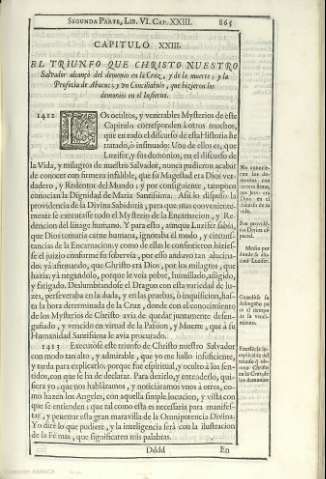 SEGUNDA PARTE, LIB. VI. CAP. XXIII. 865
CAPITULO XXIII.
EL TRIUNFO QUE CHRISTO NUESTRO
Salvador alcançò del demonio en la Cruz, y de la muerte; y la
Profecia de Abacuc; y vn Conciliabulo, que hizieron los
demonios en el Infierno.
1412 LOs ocultos, y venerables Mysterios de este
Capitulo corresponden à otros muchos,
que en todo el discurso de esta Historia he
tratado, ò insinuado: Uno de ellos es, que
Luzifer, y sus demonios, en el discurso de
la Vida, y milagros de nuestro Salvador, nunca pudieron acabar
de conocer con firmeza infalible, que su Magestad era Dios ver-
dadero, y Redentor del Mundo; y por consiguiente, tampoco
conocian la Dignidad de Maria Santissima. Assi lo dispuso la
providencia de la Divina Sabiduria, para que mas conveniente-
mente se executasse todo el Mysterio de la Encarnacion, y Re-
dencion del linage humano. Y para esto, aunque Luzifer sabia,
que Dios tomaria carne humana, ignorava el modo, y circuns-
tancias de la Encarnacion: y como de ella le consintieron hiziesse
se el juizio conforme su sobervia, por esso anduvo tan alucina-
do; yà afirmando, que Christo era Dios, por los milagros, que
hazia; yà negandolo, porque le veia pobre, humillado, afligido,
y fatigado. Deslumbrandose el Dragon con esta variedad de lu-
zes, perseverava en la duda, y en las pruebas, ò inquisicion, has-
ta la hora determinada de la Cruz, donde con el conocimiento
de los Mysterios de Christo avia de quedar juntamente desen-
gañado, y vencido en virtud de la Passion, y Muerte, que à su
Humanidad Santissima le avia procurado.
1413 Executòse este triunfo de Christo nuestro Salvador
con modo tan alto, y admirable, que yo me hallo insuficiente,
y tarda para explicarlo: porque fue espiritual, y oculto à los sen-
tidos, con que se ha de declarar. Para dezirlo, y entenderlo, qui-
siera yo, que nos hablàramos, y noticiàramos vnos à otros, co-
mo hazen los Angeles, con aquella simple locucion, y vista con
que se entienden; que tal como esta es necessaria para manifes-
tar, y penetrar esta gran maravilla de la Omnipotencia Divina.
Yo dirè lo que pudiere, y la inteligencia serà con la ilustracion
de la Fè mas, que significaren mis palabras.
Dddd En